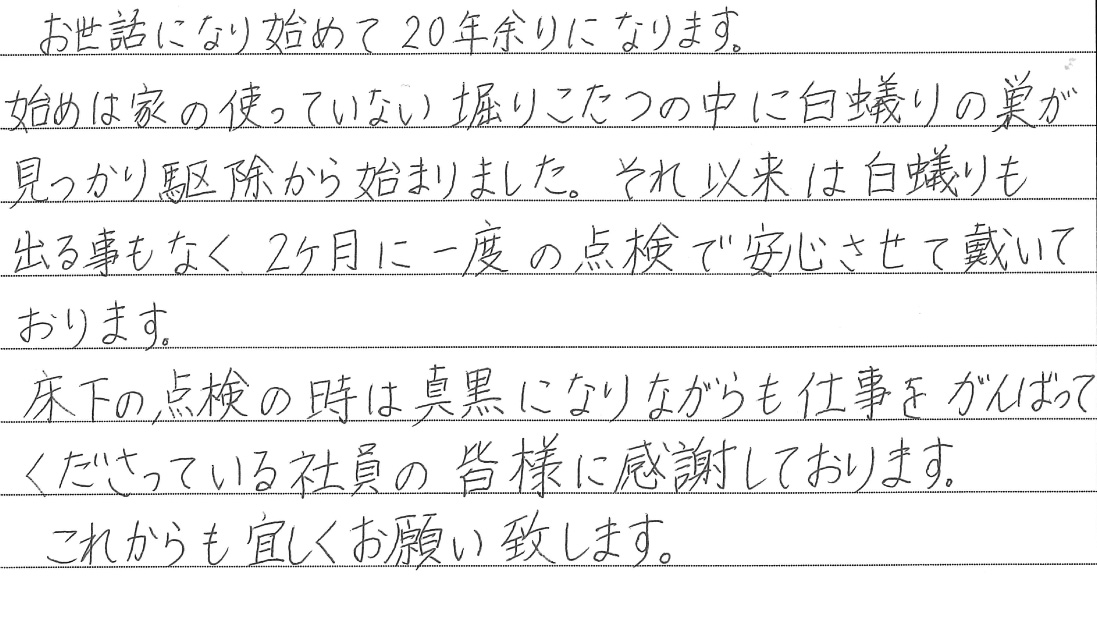 お世話になり始めて20年余りになります。
始めは家の使っていない堀りこたつの中に白蟻りの巣が
見つかり駆除から始まりました。それ以来は白蟻りも
出る事もなく2ケ月に一度の点検で安心させて戴いて
おります。
床下の点検の時は真黒になりながらも仕事をがんばって
くださっている社員の皆様に感謝しております。
これからも宜しくお願い致します。